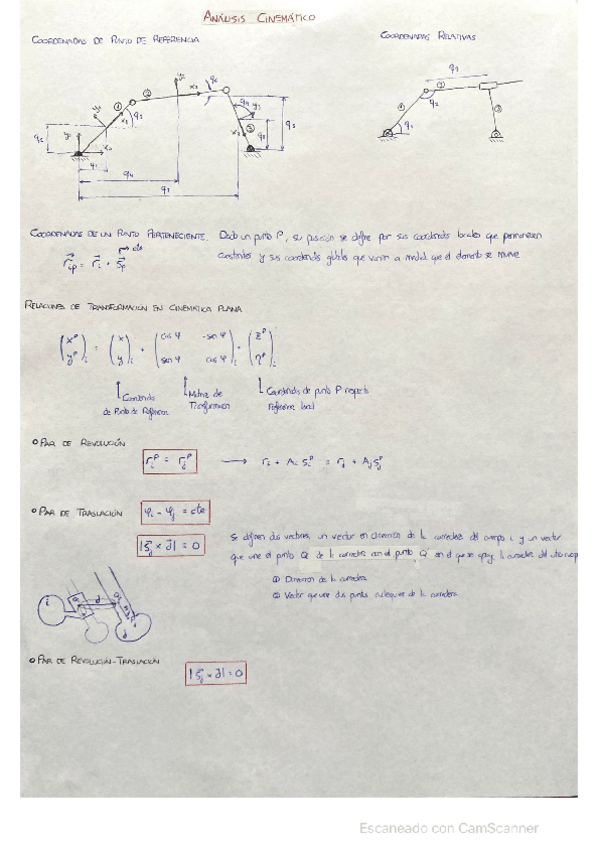 ANÁLISIS CINEMÁTICO
COORDENADAS DE PUNTO DE REFERENCIA
COORDENADAS RELATIVAS
COORDENADAS DE UN PUNTO PERTENECIENTE. Dado un punto P, su posición se define por sus coordenadas locales que permanecen
constantes y sus coordenadas globales que varían a medida que el elemento se mueve
cte
RELACIONES DE TRANSFORMACIÓN EN CINEMÁTICA PLANA
cos φ -sen φ
sen φ cos φ
Coordenadas
de Punto de Referencia
Matriz de
Transformación
Coordenadas de punto P respecto
referencia local
PAR DE REVOLUCIÓN
r_i^P = r_j^P → r_i + A_i s_i^P = r_j + A_j s_j^P
PAR DE TRASLACIÓN
φ_i - φ_j = cte
Se definen dos vectores, un vector en dirección de la corredera del cuerpo i y un vector
que une el punto Q de la corredera con el punto Q' en el que se apoya la corredera del otro
① Dirección de la corredera
② Vector que une dos puntos cualesquiera de la corredera
PAR DE REVOLUCIÓN-TRASLACIÓN
Escaneado con CamScanner